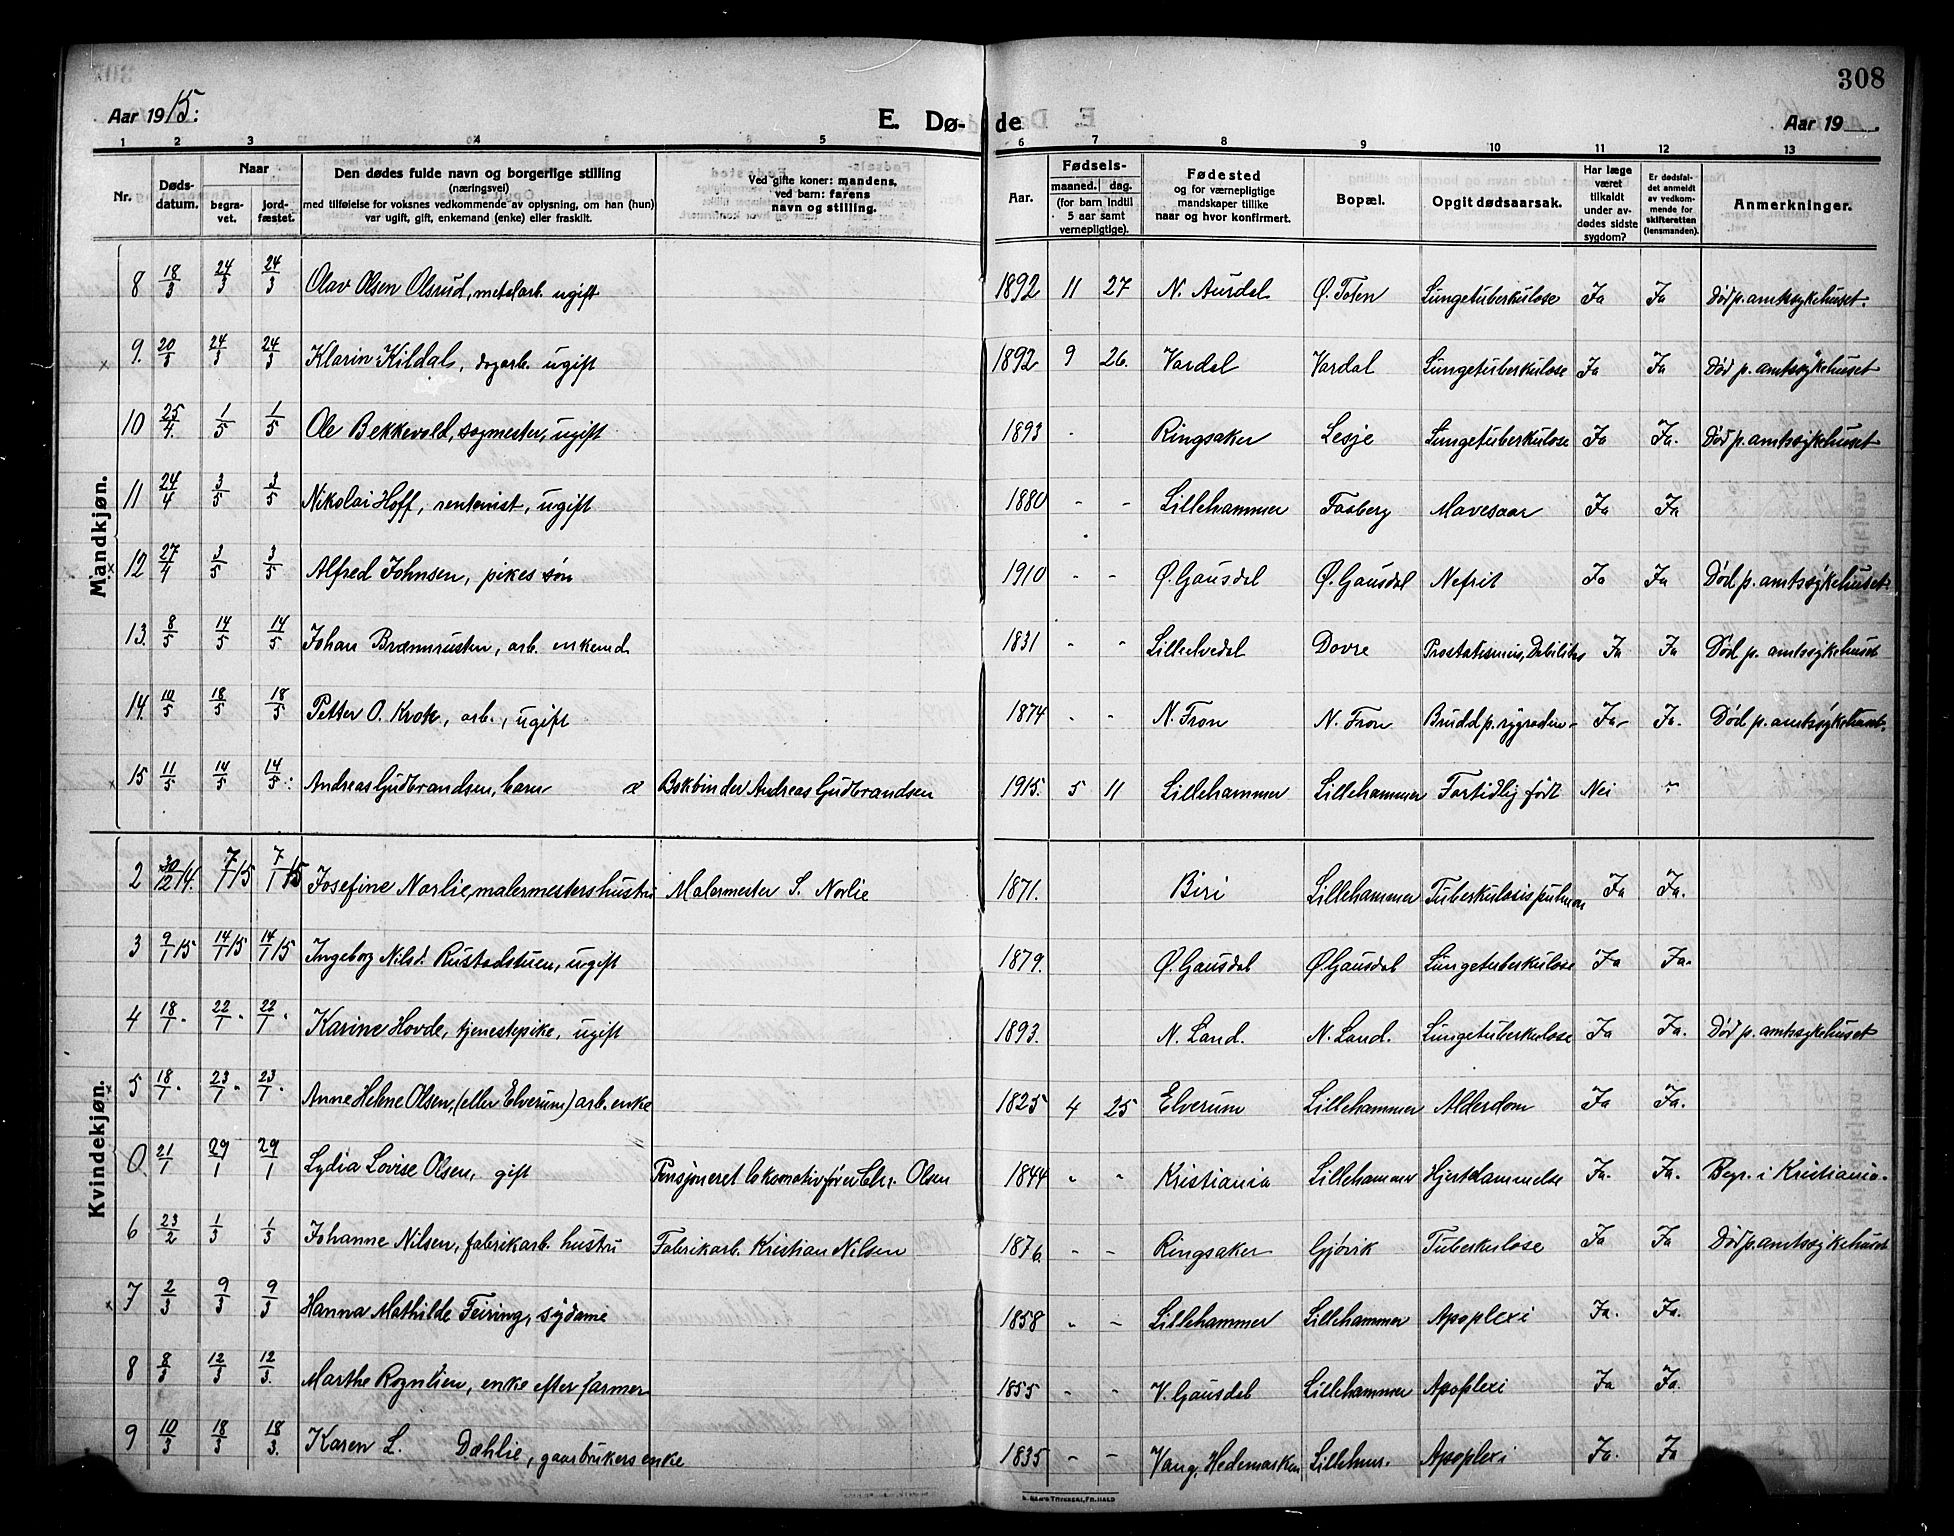 308
Aar 1915: E. Dø- de Aar 19
1 2 3 4 5 6 7 8 9 10 11 12 13
Nr. Døds-datum. Naar begra-vet. jord-fæstet. Den dødes fulde navn og borgerlige stilling (næringsvei) med tilføielse for voksnes vedkommende av oplysning, om han (hun) var ugift, gift, enkemand (enke) eller fraskilt. Ved gifte koner: mandens, ved barn: farens navn og stilling. Aar. Fødsels- maaned. dag. (for barn indtil 5 aar samt vernepligtige). Fødested og for værnepligtige mandskaper tillike naar og hvor konfirmert. Bopæl. Opgit dødsaarsak. Har læge været tilkaldt under av-dødes sidste sygdom? Er dødsfal-det anmeldt av vedkom-mende for skifteretten (lensmanden). Anmerkninger.
Mandkjøn.
8 18/3 24/3 24/3 Olav Olsen Olsrud, metalarb. ugift 1892 11 27 N. Aurdal Ø. Toten Lungetuberkulose Ja Ja Død p. amtssykehuset.
9. 20/3 24/3 24/3 Klarin Kildal, dagarb. ugift 1892 9 26. Vardal Vardal Lungetuberkulose Ja Ja Død p. amtssykehuset
10 25/4. 1/5 1/5 Ole Bekkevold, sagmester, ugift 1893 - Ringsaker Lesje Lungetuberkulose Ja Ja. Død p. amtssykehuset
11 24/4 3/5 3/5 Nikolai Hoff, rentenist, ugift 1880 - - Lillehammer Faaberg Mavesaar Ja Ja
12 27/4 3/5 3/5 Alfred Johnsen, pikes søn 1910 - - Ø. Gausdal Ø. Gausdal Nefrit Ja Ja Død p. amtssykehuset.
13. 8/5 14/5 14/5 Johan Brænnrusten, arb. enkemd. 1831 - - Lilleelvedal Dovre Prostatismus, Debilitas Ja Ja Død p. amtssykehuset
14. 10/5 18/5 18/5 Petter O. Krok, arb., ugift 1874 - - N. Fron N. Fron Brudd p. rygraden Ja Ja. Død p. amtssykehuset.
15 11/5 14/5 14/5 Andreas Gudbrandsen, barn æ Bokbinder Andreas Gudbrandsen 1915. 5 11 Lillehammer Lillehammer Fortidlig født Nei -
Kvindekjøn.
2 30/12 14. 7/1 15 7/1 15 Josefine Norlie, malermestershustru Malermester S. Norlie 1871. Biri Lillehammer Tuberkulosis pulmon Ja Ja.
3 9/1 15 14/1 15 14/1 15 Ingeborg Nilsd. Rustadstuen, ugift 1879. Ø. Gausdal Ø. Gausdal Lungetuberkulose Ja Ja.
4 18/1 - 22/1 - 22/1 - Karine Hovde, tjenestepike, ugift 1893. N. Land. N. Land. Lungetuberkulose Ja Ja. Død p. amtssykehuset
5 18/1 - 23/1 - 23/1 - Anne Helene Olsen, (eller Elverum) arb. enke 1825 4 25 Elverum Lillehammer Alderdom Ja Ja.
0 21/1 29/1 29/1 Lydia Lovise Olsen, gift Pensjoneret lokomotivfører Chr. Olsen 1844 - - Kristiania Lillehammer Hjertelammelse Ja. Ja. Begr. i Kristiania.
6 23/2 1/3 1/3 Johanne Nilsen, fabrikarb. hustru Fabrikarb. Kristian Nilsen 1876. - - Ringsaker Gjøvik Tuberkulose Ja Ja Død p. amtssykehuset
7 2/3 9/3 9/3 Hanna Mathilde Feiring, sydame 1858 - - Lillehammer Lillehammer Apoplexi Ja. Ja.
8 8/3 12/3 12/3. Marthe Rognlien, enke efter farmer 1855 - - V. Gausdal Lillehammer Apoplexi Ja Ja.
9 10/3 18/3 18/3. Karen L. Dæhlie, gaarbrukers enke 1835 - - Vang, Hedemarken Lillehmr. Apoplexi Ja. Ja